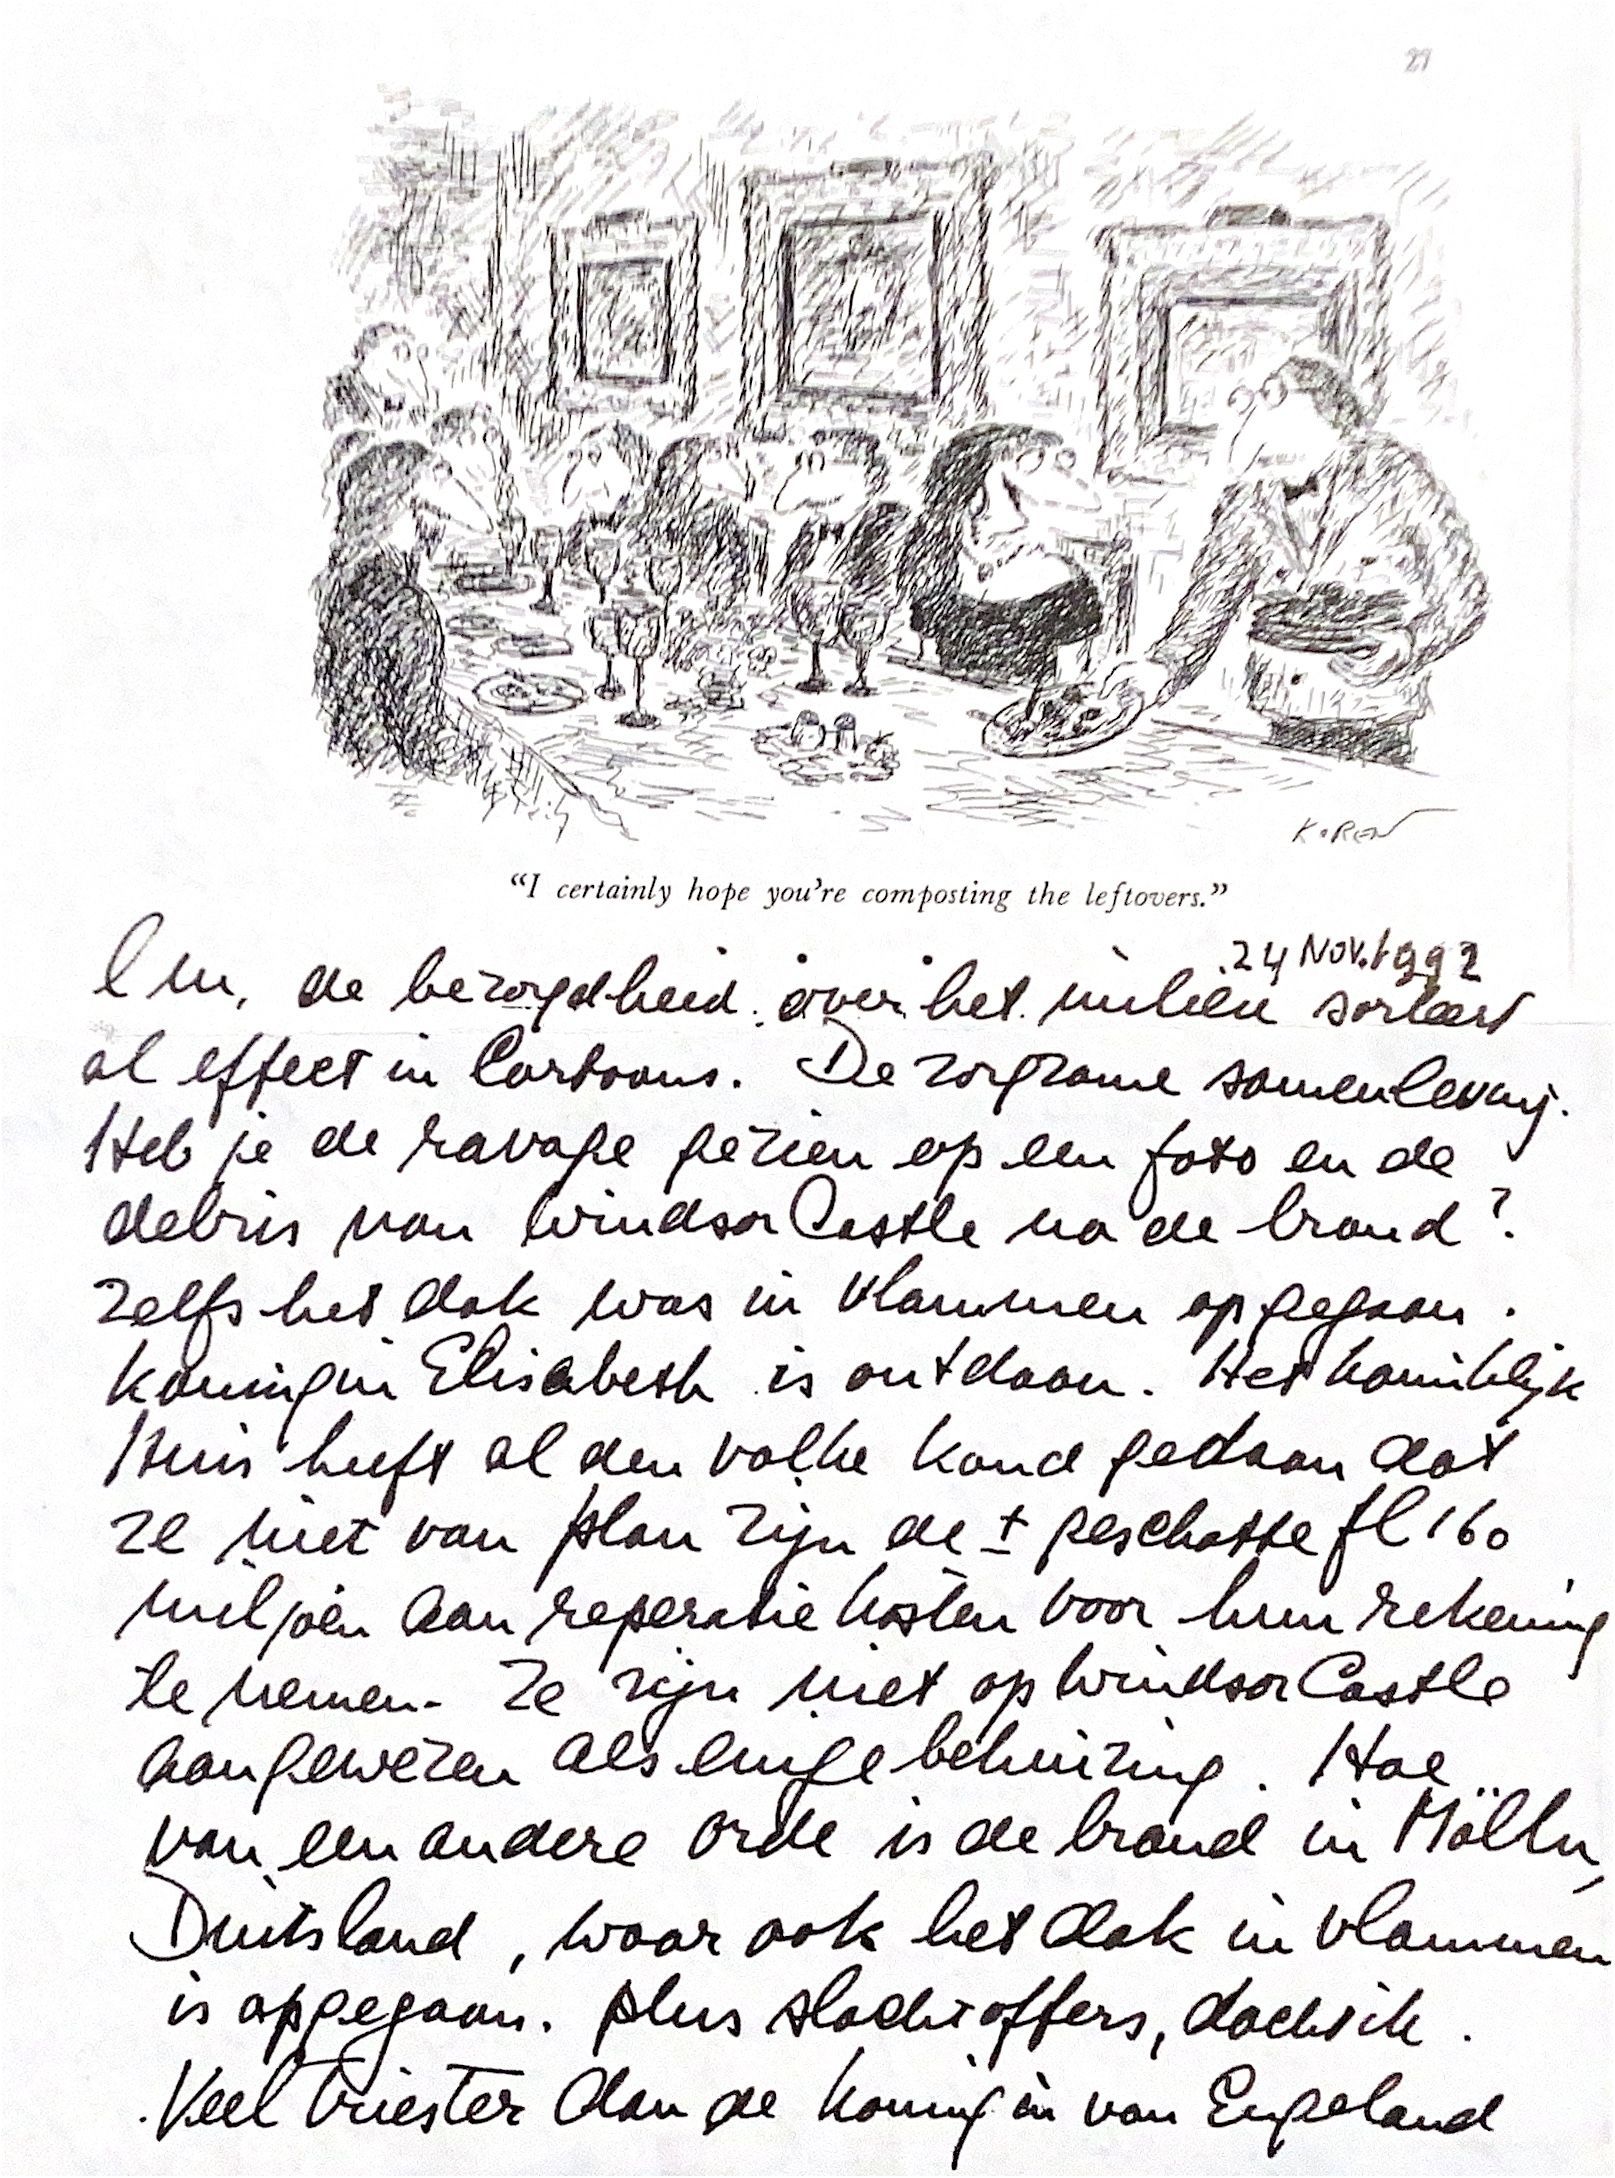 29
KOREN
“I certainly hope you’re composting the leftovers.”
24 Nov. 1992
de bezorgdheid over het milieu sorteert
al effect in Cartoons. De zorgzame samenleving.
Heb je de ravage gezien op een foto en de
debris van Windsor Castle na de brand?
Zelfs het dak was in vlammen opgegaan.
Koningin Elisabeth is ontdaan. Het koninklijk
Huis heeft al den volke kond gedaan dat
ze niet van plan zijn de ± geschatte fl 160
miljoen aan reperatie kosten voor hun rekening
te nemen. Ze zijn niet op Windsor Castle
aangewezen als enige behuizing. Hoe
van een andere orde is de brand in Mölln,
Duitsland, waar ook het dak in vlammen
is opgegaan. plus slachtoffers, dacht ik.
Veel triester dan de koningin van Engeland